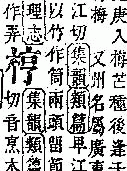 庚入梅芒種後逢
梅　又州名屬廣東
江切集韻類篇𠀤江
以竹作筒兩頭留節
理志
作弄
梈集韻類篇
切音烹木